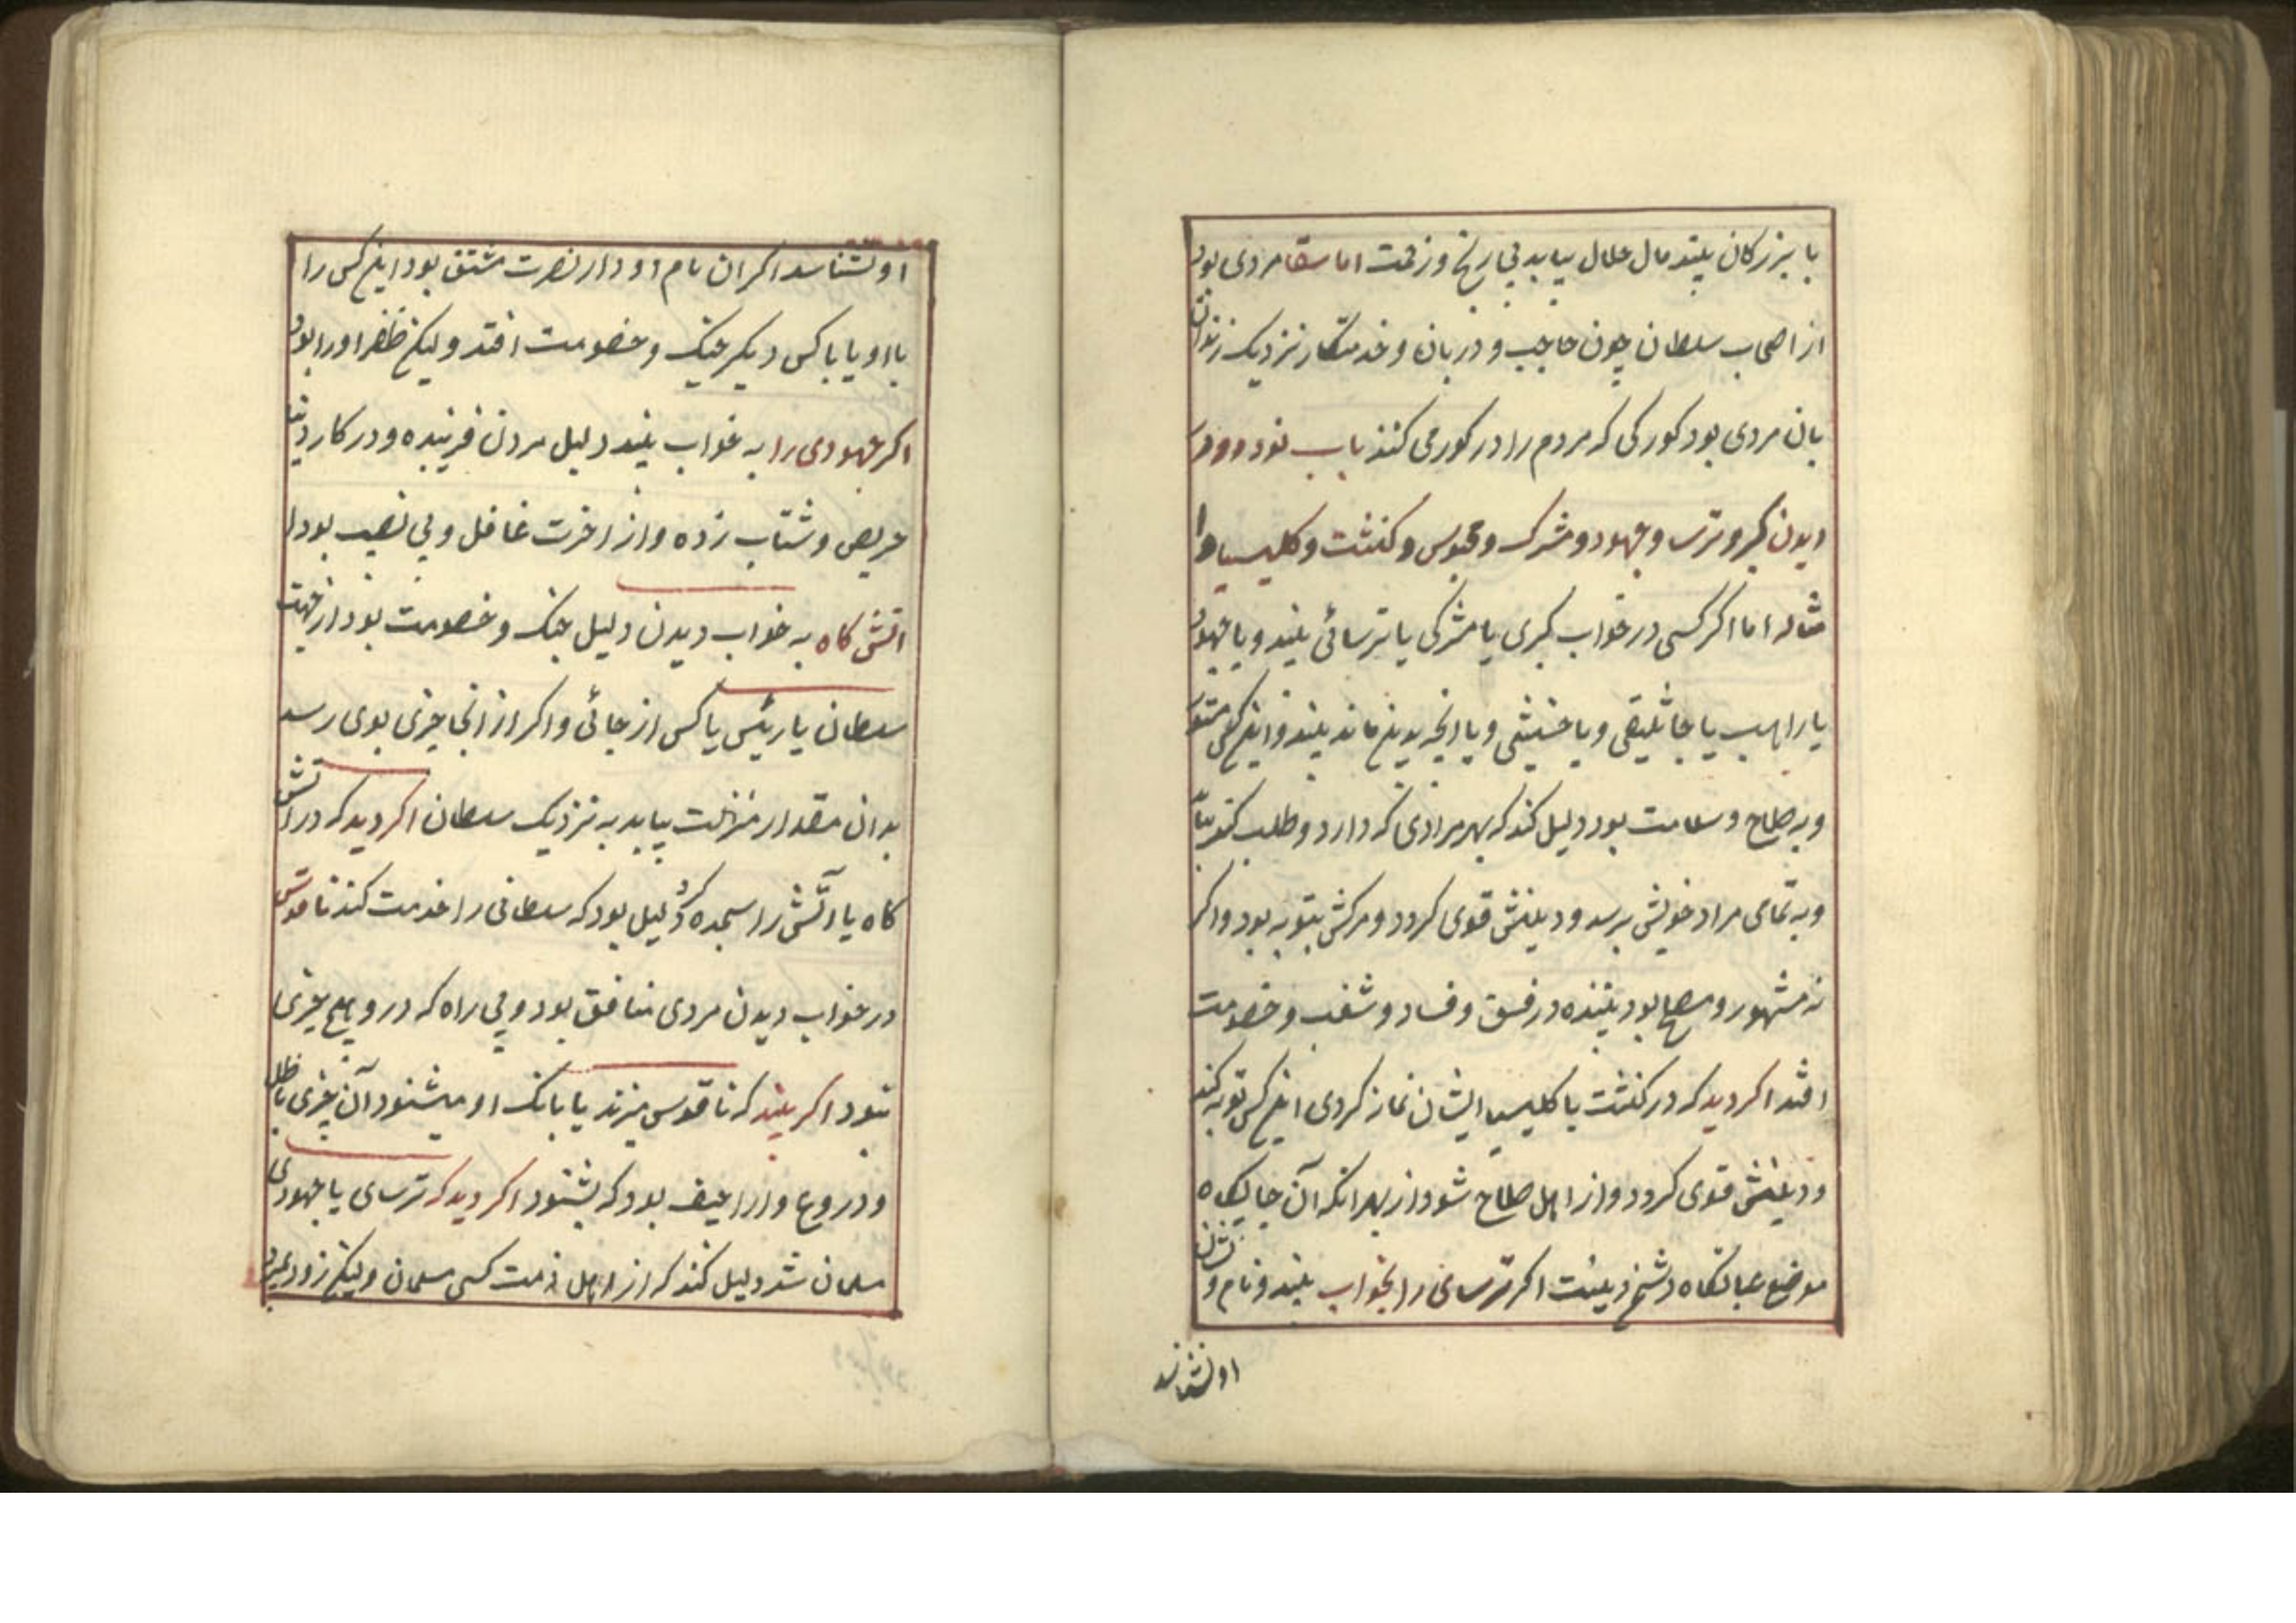 با بزرکان بیند مال حلال بیابد بی رنج و زحمت اما سقا مردی بود
از اصحاب سلطان چون حاجب و دربان و خدمتکار نزدیک زندان
بان مردی بود کورکی که مردم را در کور می کنند باب نود دوم در
دیدن کبر و ترسا و جهود و مشرک و مجوس و کنشت و کلیسیا و ا
مثاله اما اکر کسی در خواب کبری یا مشرکی یا ترسائی بیند و یا جهود
یا راهب یا جاثلیقی و یا خسیسی و یا انچه بدین ماند بیند و این کس مستور
و به صلاح و سلامت بود دلیل کند که بهر مرادی که دارد و طلب کند بیابد
و به تمامی مراد خویش برسد و دینش قوی کردد و مرکش بتوبه بود و اکر
نه مشهور و مصلح بود بیننده در فسق و فساد و شغب و خصومت
افتد اکر دید که در کنشت یا کلیسیا ایشان نماز کردی این کس توبه کند
و دینش قوی کردد و از اهل صلاح شود از بهر انکه آن جایکاه
موضع عبادتکاه دشمن دینست اکر ترسائی را بخواب بیند و نام و نشان
او نشناسد
او نشناسد اکر ان نام او دار نصرت مشتق بود این کس را
با او یا با کس دیکر جنک و خصومت افتد ولیکن ظفر او را بود
اکر جهودی را به خواب بیند دلیل مردن فریبنده و در کار دنیا
حریص و شتاب زده و از اخرت غافل و بی نصیب بود ا
اتش کاه به خواب دیدن دلیل جنک و خصومت بود از جهت
سلطان یا رئیس یا کس از جائی و اکر از انجا چیزی بوی رسد
بدان مقدار منزلت بیابد به نزدیک سلطان اکر دید که در اتش
کاه یا اتش را سجده کرد دلیل بود که سلطانی را خدمت کند ناقوس
در خواب دیدن مردی منافق بود و بی راه که در و هیچ چیزی
نبود اکر بیند که ناقوس میزند یا بانک او میشنود آن چیزی باطل
و دروغ و اراجیف بود که بشنود اکر دید که ترسای یا جهودی
مسلمان شد دلیل کند که از اهل ذمت کسی مسلمان ولیکن زود بمیرد